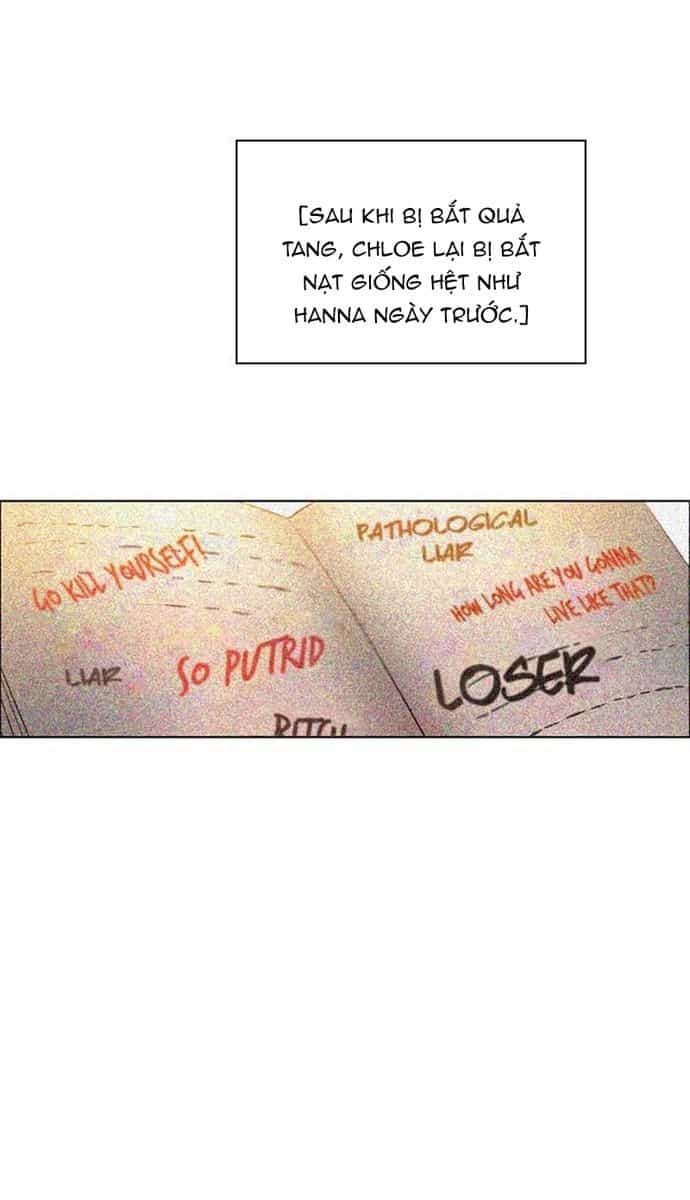 [SAU KHI BỊ BẮT QUẢ
TANG, CHLOE LẠI BỊ BẮT
NẠT GIỐNG HỆT NHƯ
HANNA NGÀY TRƯỚC.]
GO KILL YOURSELF!
LIAR
SO PUTRID
PATHOLOGICAL
LIAR
HOW LONG ARE YOU GONNA
LIVE LIKE THAT?
LOSER